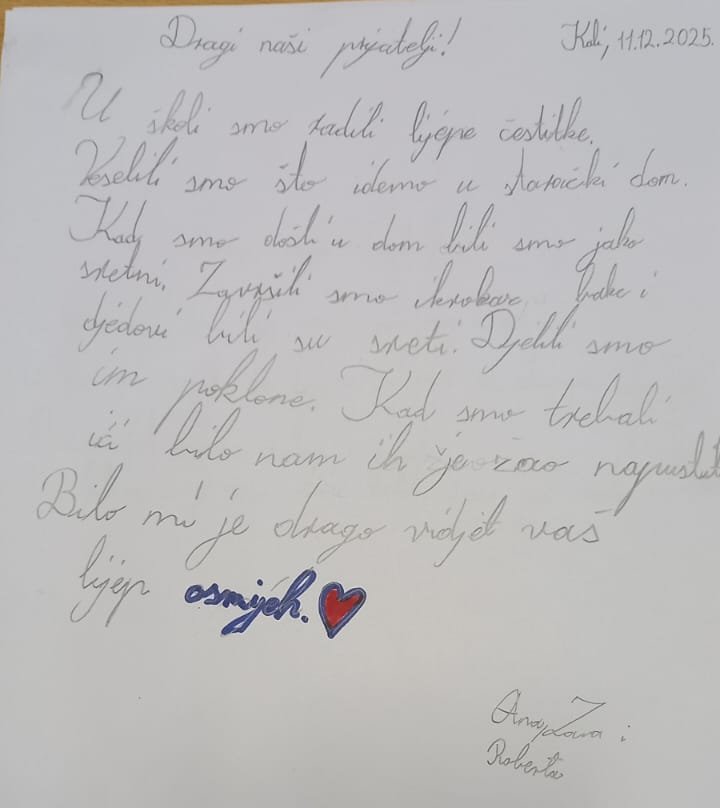 Dragi naši prijatelji! Kali, 11.12.2025.
U školi smo radili lijepe čestitke.
Veselili smo što idemo u starački dom.
Kad smo došli u dom bili smo jako
sretni. Završili smo i bake i
djedovi bili su sreti. Djelili smo
im poklone. Kad smo trebali
ić bilo nam ih je žao napustit
Bilo mi je drago vidjet vaš
lijep osmijeh.
Ana, Zara i
Roberta